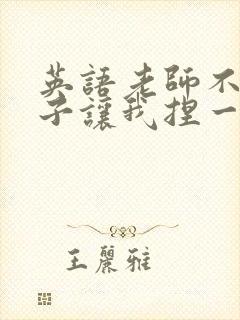 英語老師不
子讓我捏一
王麗雅